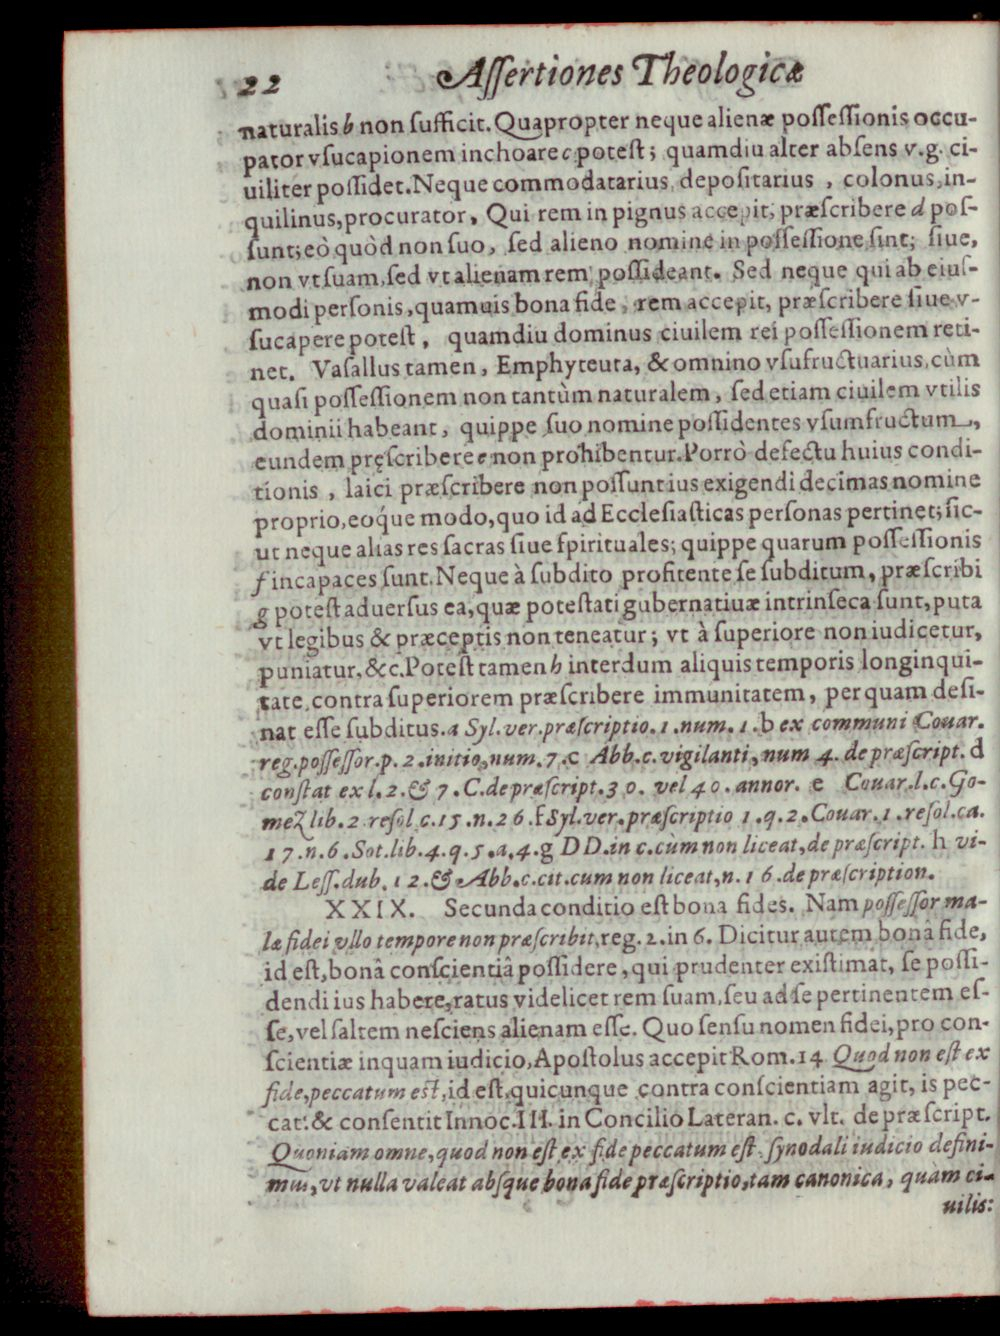 22 Aſſertiones Theologicæ
naturalis b non ſufficit. Quapropter neque alienæ poſſeſſionis occu-
pator vſucapionem inchoare c poteſt; quamdiu alter abſens v.g. ci-
uiliter poſſidet. Neque commodatarius, depoſitarius , colonus, in-
quilinus, procurator, Qui rem in pignus accepit, præſcribere d poſ-
ſunt; eò quòd non ſuo, ſed alieno nomine in poſſeſſione ſint; ſiue,
non vt ſuam, ſed vt alienam rem poſſideant. Sed neque qui ab eiuſ-
modi perſonis, quamuis bona fide, rem accepit, præſcribere ſiue v-
ſucapere poteſt, quamdiu dominus ciuilem rei poſſeſſionem reti-
net. Vaſallus tamen, Emphyteuta, & omnino vſufructuarius, cùm
quaſi poſſeſſionem non tantùm naturalem, ſed etiam ciuilem vtilis
dominii habeant, quippe ſuo nomine poſſidentes vſumfructum,
eundem pręſcribere e non prohibentur. Porrò defectu huius condi-
tionis , laici præſcribere non poſſunt ius exigendi decimas nomine
proprio, eoq́ue modo, quo id ad Eccleſiaſticas perſonas pertinet; ſic-
ut neque alias res ſacras ſiue ſpirituales; quippe quarum poſſeſſionis
f incapaces ſunt. Neque à ſubdito profitente ſe ſubditum, præſcribi
g poteſt aduerſus ea, quæ poteſtati gubernatiuæ intrinſeca ſunt, puta
vt legibus & præceptis non teneatur; vt à ſuperiore non iudicetur,
puniatur, &c. Poteſt tamen h interdum aliquis temporis longinqui-
tate, contra ſuperiorem præſcribere immunitatem, per quam deſi-
nat eſſe ſubditus. a Syl. ver. præſcriptio. 1. num. 1. b ex communi Couar.
reg. poſſeſſor. p. 2. initio, num. 7. c Abb. c. vigilanti, num 4. de præſcript. d
conſtat ex l. 2. & 7. C. de præſcript. 30. vel 40. annor. e Couar. l. c. Go-
mez lib. 2 reſol c. 15. n. 26. f Syl. ver. præſcriptio 1. q. 2. Couar. 1. reſol. ca.
17. n. 6. Sot. lib. 4. q. 5. a. 4. g DD. in c. cùm non liceat, de præſcript. h vi-
de Leſſ. dub. 12. & Abb. c. cit. cum non liceat, n. 16. de præſcription.
XXIX. Secunda conditio eſt bona fides. Nam poſſeſſor ma-
læ fidei vllo tempore non præſcribit, reg. 2. in 6. Dicitur autem bonâ fide,
id eſt, bonâ conſcientiâ poſſidere, qui prudenter exiſtimat, ſe poſſi-
dendi ius habere, ratus videlicet rem ſuam, ſeu ad ſe pertinentem eſ-
ſe, vel ſaltem neſciens alienam eſſe. Quo ſenſu nomen fidei, pro con-
ſcientiæ inquam iudicio, Apoſtolus accepit Rom. 14 Quod non eſt ex
fide, peccatum eſt, id eſt, quicunque contra conſcientiam agit, is pec-
cat: & conſentit Innoc. III. in Concilio Lateran. c. vlt. de præſcript.
Quoniam omne, quod non eſt ex fide peccatum eſt, ſynodali iudicio defini-
mus, vt nulla valeat abſque bona fide præſcriptio, tam canonica, quàm ci-
uilis: